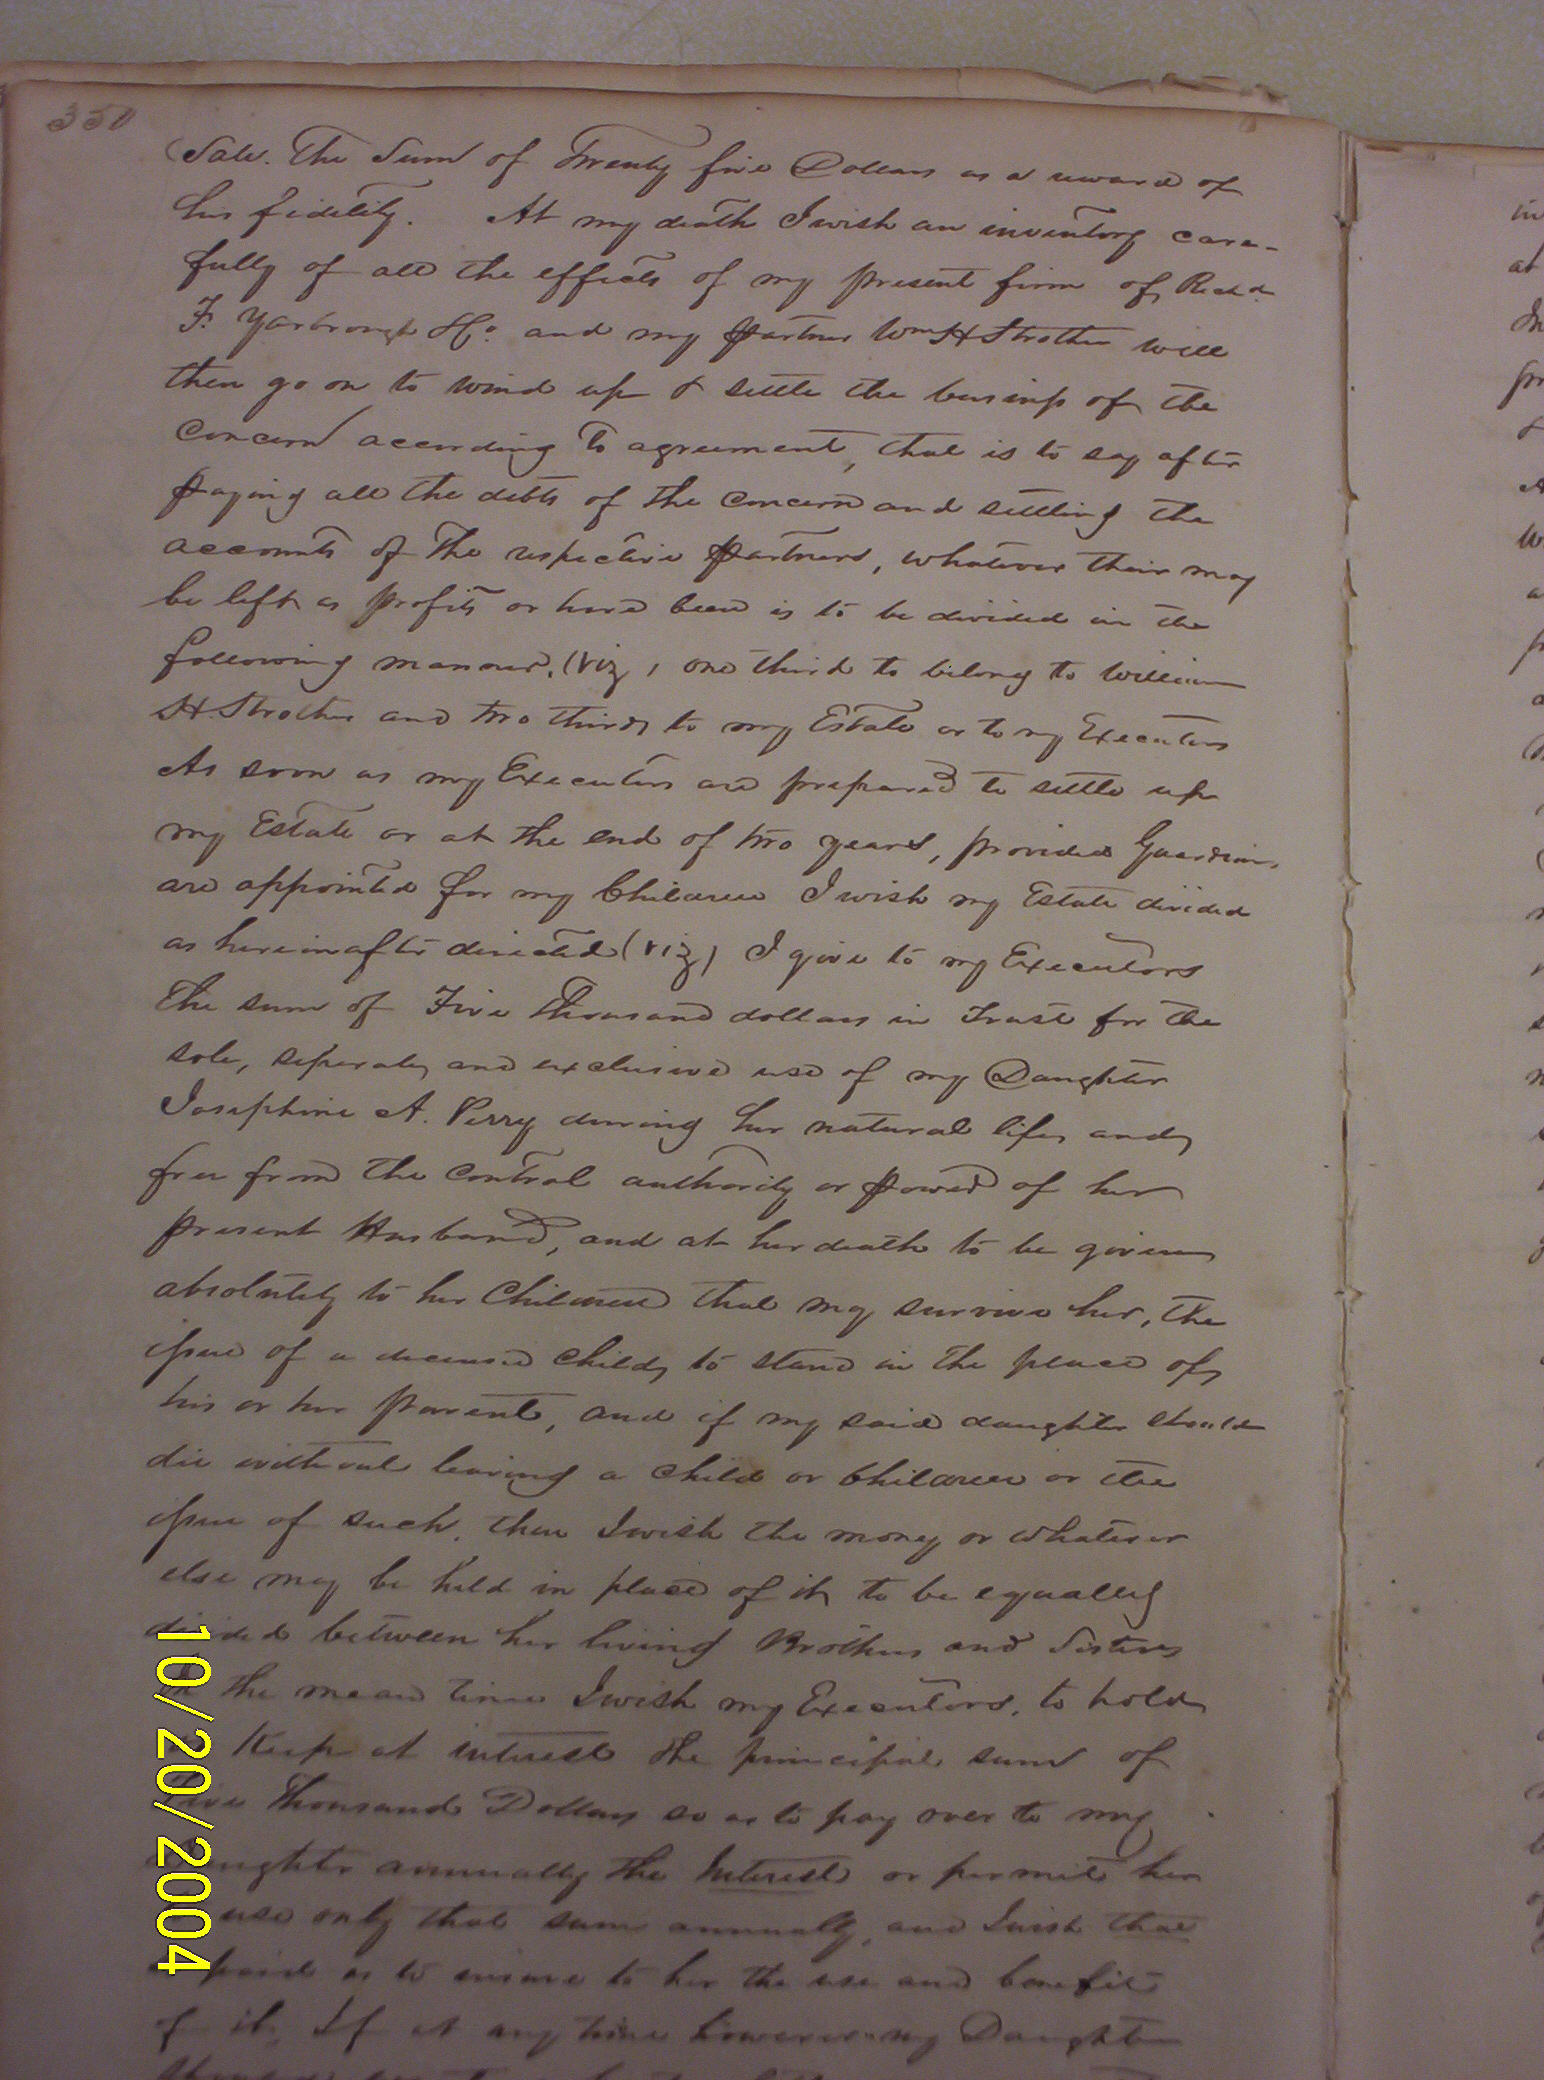 350
Sale. The Sum of Twenty five Dollars as a reward of
his fidelity. At my death I wish an inventory care-
fully of all the effects of my present firm of Richd.
F. Yarbrough & Co. and my partner Wm H Strother will
then go on to wind up & settle the business of the
Concern according to agreement, that is to say after
paying all the debts of the Concern and settling the
accounts of the respective partners, whatever their may
be left as profits or have been is to be divided in the
following manner, (viz) one third to belong to William
H. Strother and two thirds to my Estate or to my Executors
As soon as my Executors are prepared to settle up
my Estate or at the end of two years, provided Guardians
are appointed for my Children I wish my Estate divided
as hereinafter directed (viz) I give to my Executors
The sum of Five Thousand dollars in Trust for the
sole, seperate, and exclusive use of my Daughter
Josephine A. Perry during her natural life, and
free from the control authority or power of her
present Husband, and at her death to be given
absolutely to her Children that may survive her, the
issue of a deceased child, to stand in the place of
his or her parent, and if my said daughter should
die without leaving a child or Children or the
issue of such, then I wish the money or whatever
else may be held in place of it, to be equally
divided between her living Brothers and Sisters
In the mean time I wish my Executors, to hold
Keep at interest the principal sum of
Five Thousand Dollars so as to pay over to my
Daughter annually the Interest or permit her
use only that sum annually, and I wish that
paid as to ensure to her the use and benefit
of it. If at any time however my Daughter
10/20/2004
in
at